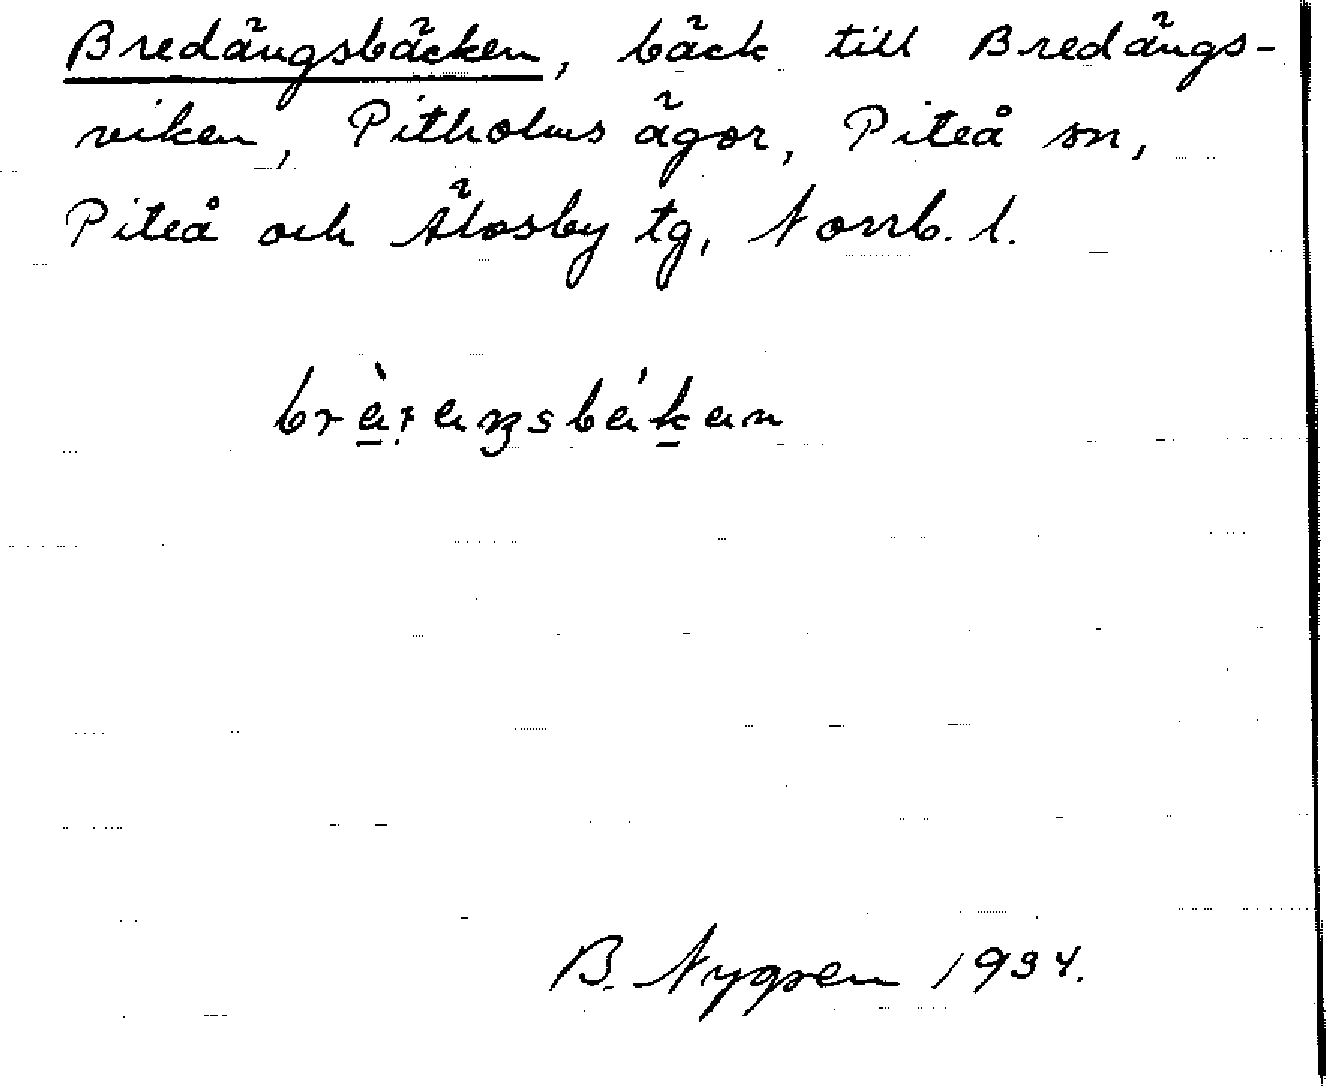 Bredängsbäcken, bäck till Bredängs-
viken, Pitholms ägor, Piteå sn,
Piteå och Älvsby tg, Norrb. l.
B. Nygren 1934.